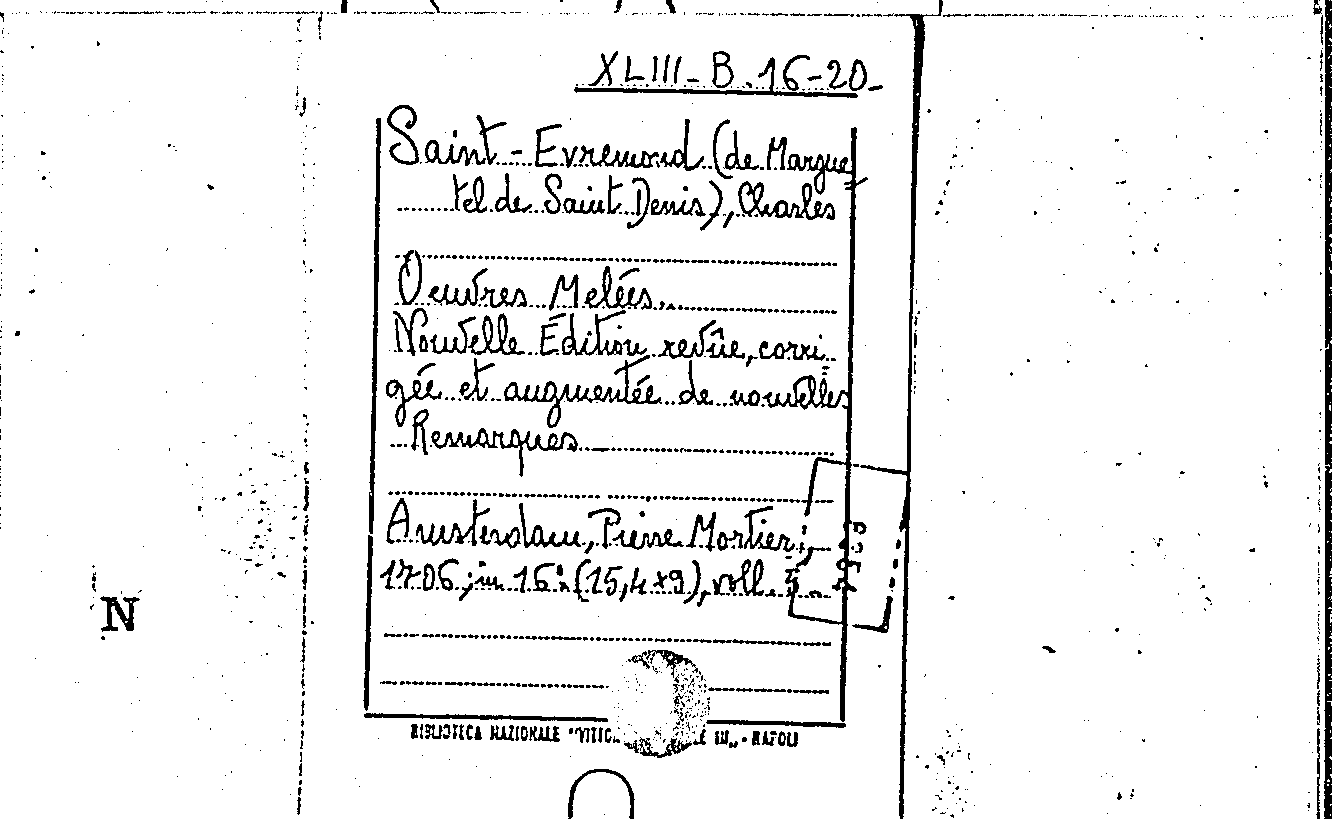 XLIII-B.16-20.
Saint-Evremond (de Margue
tel de Saint Denis), Charles
Oeuvres Melées...
Nouvelle Édition revûe, corri
gée et augmentée de nouvelles
Remarques
Amsterdam, Pierre Mortier,
1706; in 16: (15,4x9), voll. 5.
N
BIBLIOTECA NAZIONALE "VITTO LE III„ - NAPOLI